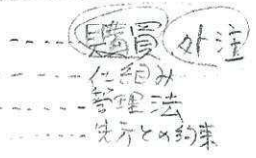 購買 外注
仕組み
管理法
先方との約束